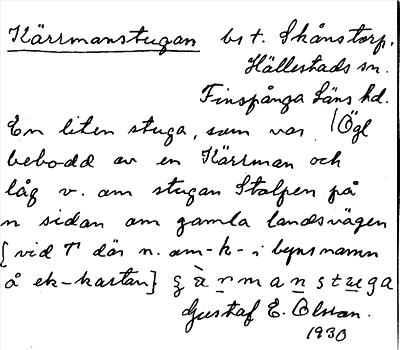 Kärrmanstugan bs t. Skånstorp.
Hällestads sn.
Finspånga Läns hd.
En liten stuga, som var / Ögl
bebodd av en Kärrman och
låg v. om stugan Stolpen på
n sidan om gamla landsvägen
[vid T där n. om -k- i bynsnamn
å ek-kartan] ç à r m a n s t u g a
Gustaf E. Olsson.
1930